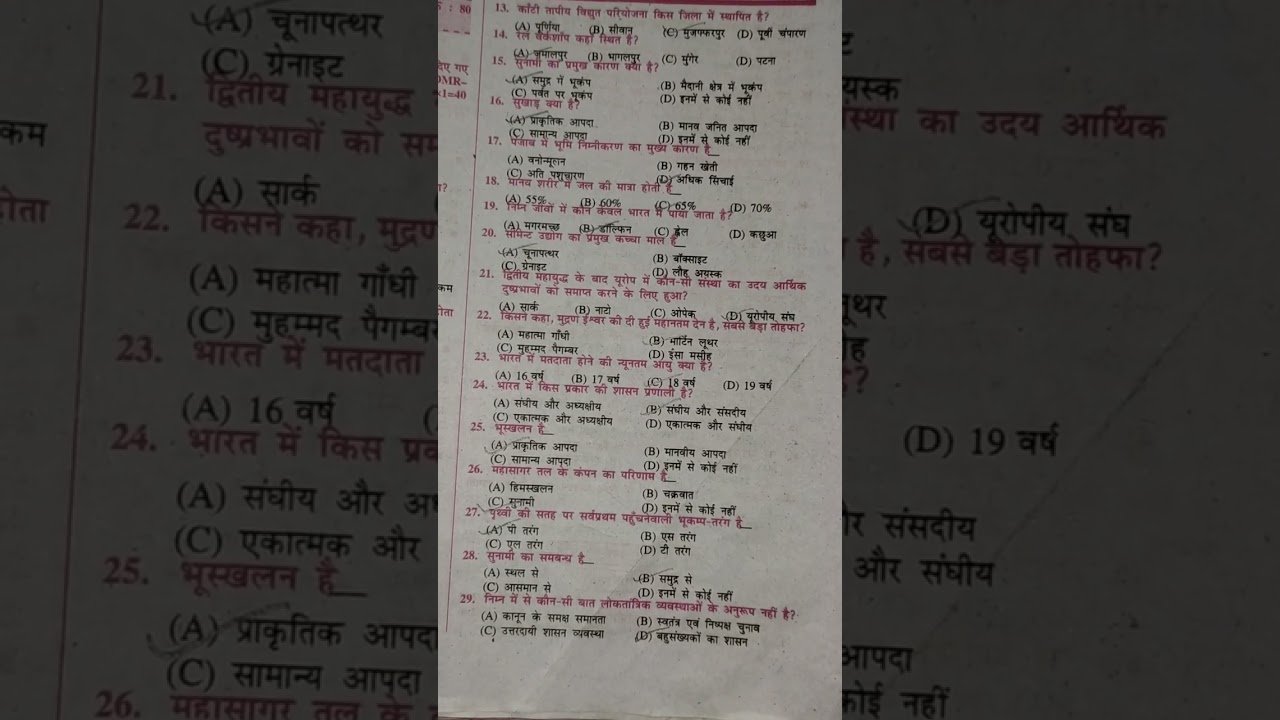 : 80
13. काँटी तापीय विद्युत परियोजना किस जिला में स्थापित है?
(A) पूर्णिया (B) सीवान (C) मुजफ्फरपुर (D) पूर्वी चंपारण
14. रेल वर्कशॉप कहाँ स्थित है?
(A) जमालपुर (B) भागलपुर (C) मुंगेर (D) पटना
15. सुनामी का प्रमुख कारण क्या है?
(A) समुद्र में भूकंप (B) मैदानी क्षेत्र में भूकंप
(C) पर्वत पर भूकंप (D) इनमें से कोई नहीं
16. सुखाड़ क्या है?
(A) प्राकृतिक आपदा (B) मानव जनित आपदा
(C) सामान्य आपदा (D) इनमें से कोई नहीं
17. पंजाब में भूमि निम्नीकरण का मुख्य कारण है__
(A) वनोन्मूलन (B) गहन खेती
(C) अति पशुचारण (D) अधिक सिंचाई
18. मानव शरीर में जल की मात्रा होती है__
(A) 55% (B) 60% (C) 65% (D) 70%
19. निम्न जीवों में कौन केवल भारत में पाया जाता है?
(A) मगरमच्छ (B) डॉल्फिन (C) ह्वेल (D) कछुआ
20. सीमेन्ट उद्योग का प्रमुख कच्चा माल है__
(A) चूनापत्थर (B) बॉक्साइट
(C) ग्रेनाइट (D) लौह अयस्क
21. द्वितीय महायुद्ध के बाद यूरोप में कौन-सी संस्था का उदय आर्थिक
दुष्प्रभावों को समाप्त करने के लिए हुआ?
(A) सार्क (B) नाटो (C) ओपेक (D) यूरोपीय संघ
22. किसने कहा, मुद्रण ईश्वर की दी हुई महानतम देन है, सबसे बड़ा तोहफा?
(A) महात्मा गाँधी (B) मार्टिन लूथर
(C) मुहम्मद पैगम्बर (D) ईसा मसीह
23. भारत में मतदाता होने की न्यूनतम आयु क्या है?
(A) 16 वर्ष (B) 17 वर्ष (C) 18 वर्ष (D) 19 वर्ष
24. भारत में किस प्रकार की शासन प्रणाली है?
(A) संघीय और अध्यक्षीय (B) संघीय और संसदीय
(C) एकात्मक और अध्यक्षीय (D) एकात्मक और संघीय
25. भूस्खलन है__
(A) प्राकृतिक आपदा (B) मानवीय आपदा
(C) सामान्य आपदा (D) इनमें से कोई नहीं
26. महासागर तल के कंपन का परिणाम है__
(A) हिमस्खलन (B) चक्रवात
(C) सुनामी (D) इनमें से कोई नहीं
27. पृथ्वी की सतह पर सर्वप्रथम पहुँचनेवाली भूकम्प-तरंग है__
(A) पी तरंग (B) एस तरंग
(C) एल तरंग (D) टी तरंग
28. सुनामी का समबन्ध है__
(A) स्थल से (B) समुद्र से
(C) आसमान से (D) इनमें से कोई नहीं
29. निम्न में से कौन-सी बात लोकतांत्रिक व्यवस्थाओं के अनुरूप नहीं है?
(A) कानून के समक्ष समानता (B) स्वतंत्र एवं निष्पक्ष चुनाव
(C) उत्तरदायी शासन व्यवस्था (D) बहुसंख्यकों का शासन